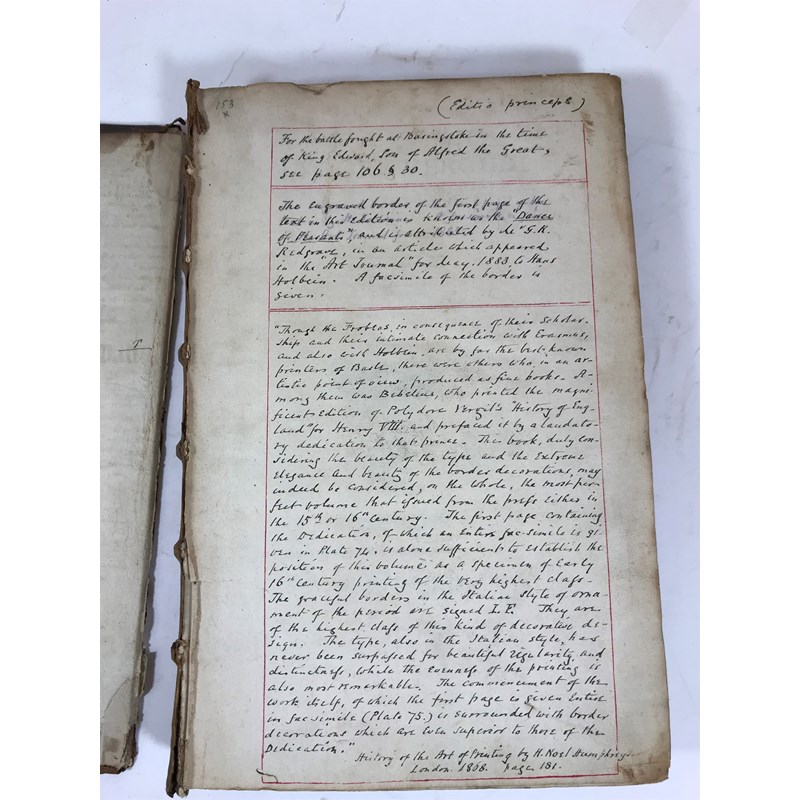 153
x
(Editio princeps)
For the battle fought at Basingstoke in the time
of King Edward, Son of Alfred the Great,
see page 106 § 30.
The engraved border of the first page of the
text in this edition is known as the "Dance
of Peasants", and is attributed by Mr G. R.
Redgrave, in an article which appeared
in the "Art Journal" for May. 1883 to Hans
Holbein. A facsimile of the border is
given.
"Though the Frobens, in consequence of their Scholar-
ship and their intimate connection with Erasmus,
and also with Holbein, are by far the best-known
printers of Basle, there were others who, in an ar-
tistic point of view, produced as fine books. A-
mong them was Bebelius, who printed the magni-
ficent edition of Polydore Vergil's "History of Eng-
land" for Henry VIII. and prefaced it by a laudato-
ry dedication to that prince. The book, duly con-
sidering the beauty of the type and the extreme
elegance and beauty of the border decorations, may
indeed be considered, on the whole, the most per-
fect volume that issued from the press either in
the 15th or 16th Century. The first page containing
the Dedication, of which an entire fac-simile is gi-
ven in Plate 74, is alone sufficient to establish the
position of this volume as a specimen of early
16th Century printing of the very highest class.
The graceful borders in the Italian style of orna-
ment of the period are signed I. F. They are
of the highest class of this kind of decorative de-
sign. The type, also in the Italian style, has
never been surpassed for beautiful regularity and
distinctness, while the evenness of the printing is
also most remarkable. The commencement of the
work itself, of which the first page is given entire
in fac-simile (Plate 75.) is surrounded with border
decorations which are even superior to those of the
Dedication."
History of the Art of Printing by H. Noel Humphreys.
London. 1868. page 181.
T